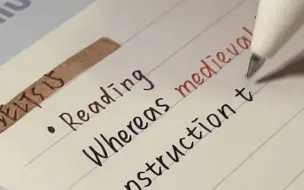 • Reading
Whereas medieval
nstruction t